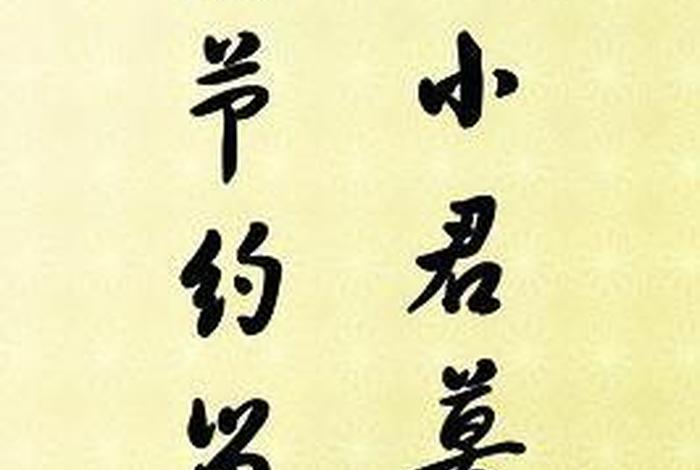 小君
节约